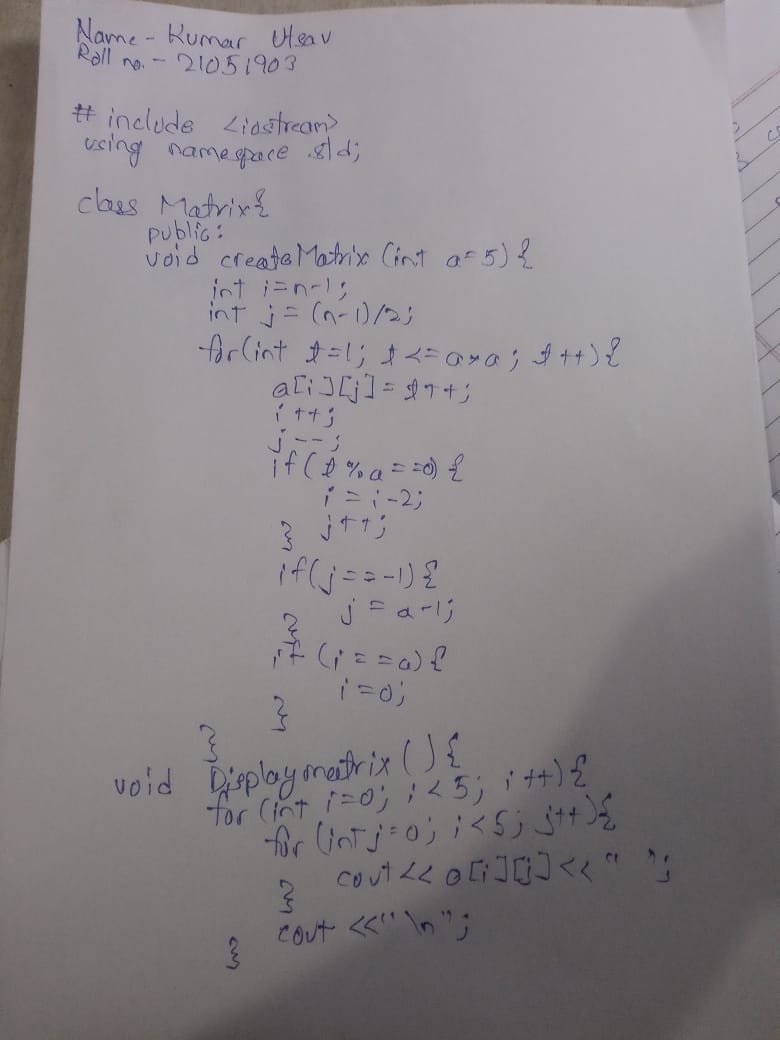 Name - Kumar Utsav
Roll no. - 21051903
# include <iostream>
using namespace std;
class Matrix{
public:
void createMatrix (int a=5) {
int i=n-1;
int j = (n-1)/2;
for(int t=1; t<=a*a; t++){
a[i][j]=t++;
i++;
j--;
if(t%a==0){
i=i-2;
j++;
}
if(j==-1){
j=a-1;
}
if (i==a){
i=0;
}
}
void Displaymatrix () {
for (int i=0; i<5; i++){
for (int j=0; i<5; j++){
cout << a[i][j]<<" ";
}
cout <<"\n";
}